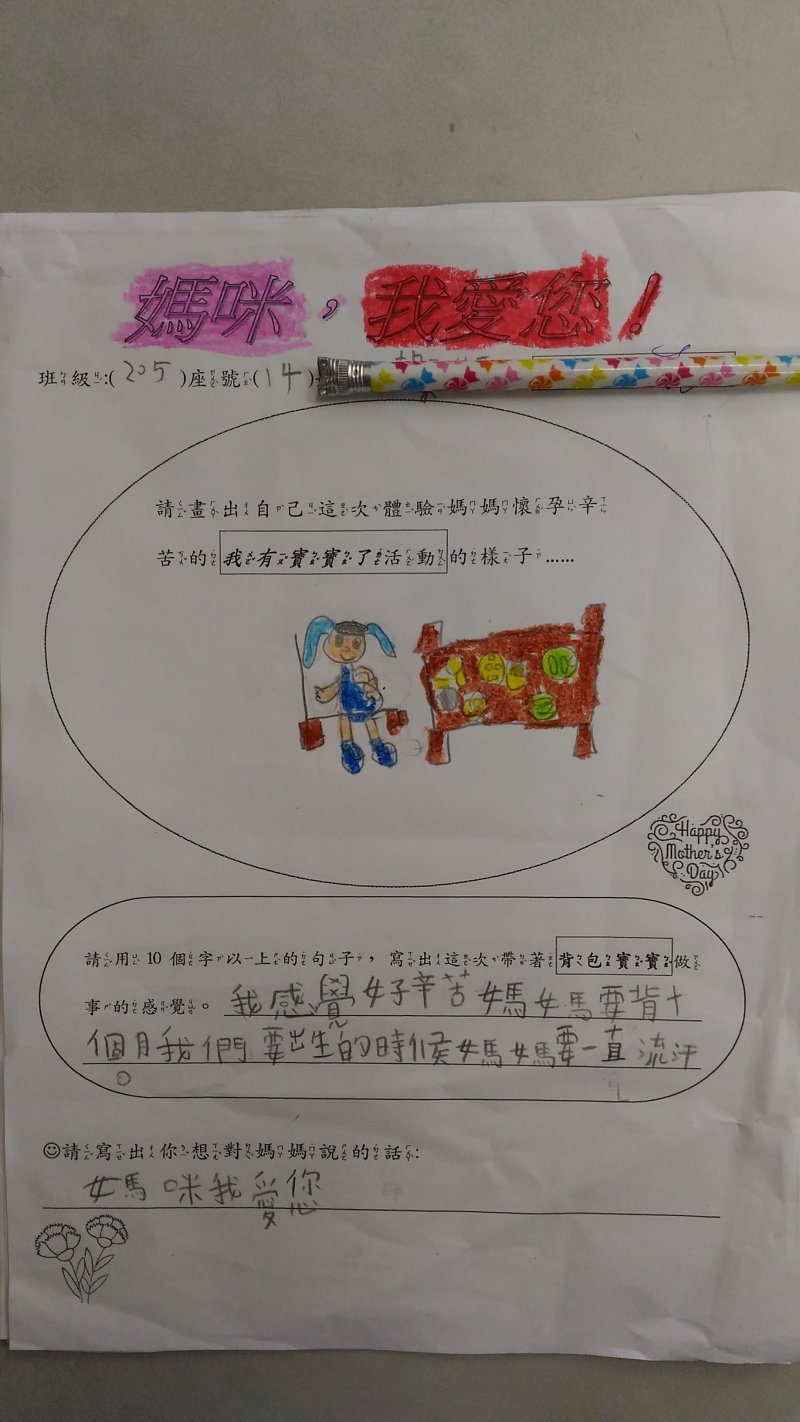 媽咪，我愛您！
班級:( 205 )座號(14)
請畫出自己這次體驗媽媽懷孕辛
苦的我有寶寶了活動的樣子……
Happy
Mother's
Day
請用 10 個字以上的句子，寫出這次帶著背包寶寶做
事的感覺。我感覺好辛苦媽媽要背十
個月我們要出生的時候媽媽要一直流汗
。
☺請寫出你想對媽媽說的話:
媽咪我愛您